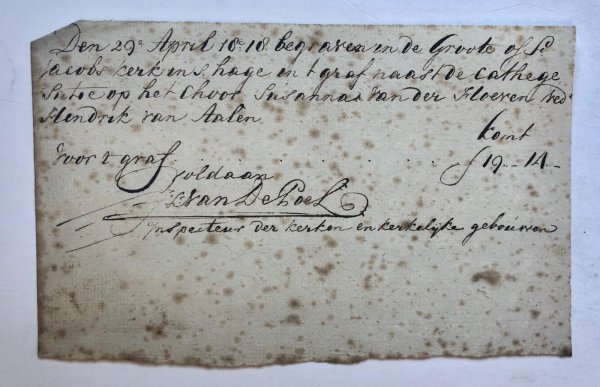 Den 29e April 1818 begraven in de Groote of St
Jacobs kerk in s hage in t graf naast de Cathege
op het Choor Susanna van der Hoeven wed
Hendrik van Aalen
komt
voor t graf f 19 - 14 -
voldaan
van De Poel
Inspecteur der kerken en kerkelyke gebouwen